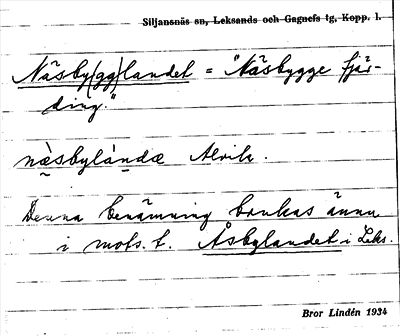 Siljansnäs sn, Leksands och Gagnefs tg, Kopp. l.
Näsby(gg)landet = "Näsbygge fjär-
ding."
næ̀sbylándæ Alvik.
Denna benämning brukas ännu
i mots. t. Åsbylandet i Leks.
Bror Lindén 1934